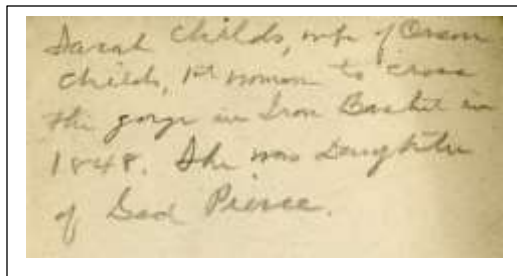 Sarah Childs, wife of Orson
Childs, 1st woman to cross
the gorge in Iron Basket in
1848. She was Daughter
of Gad Pierce.